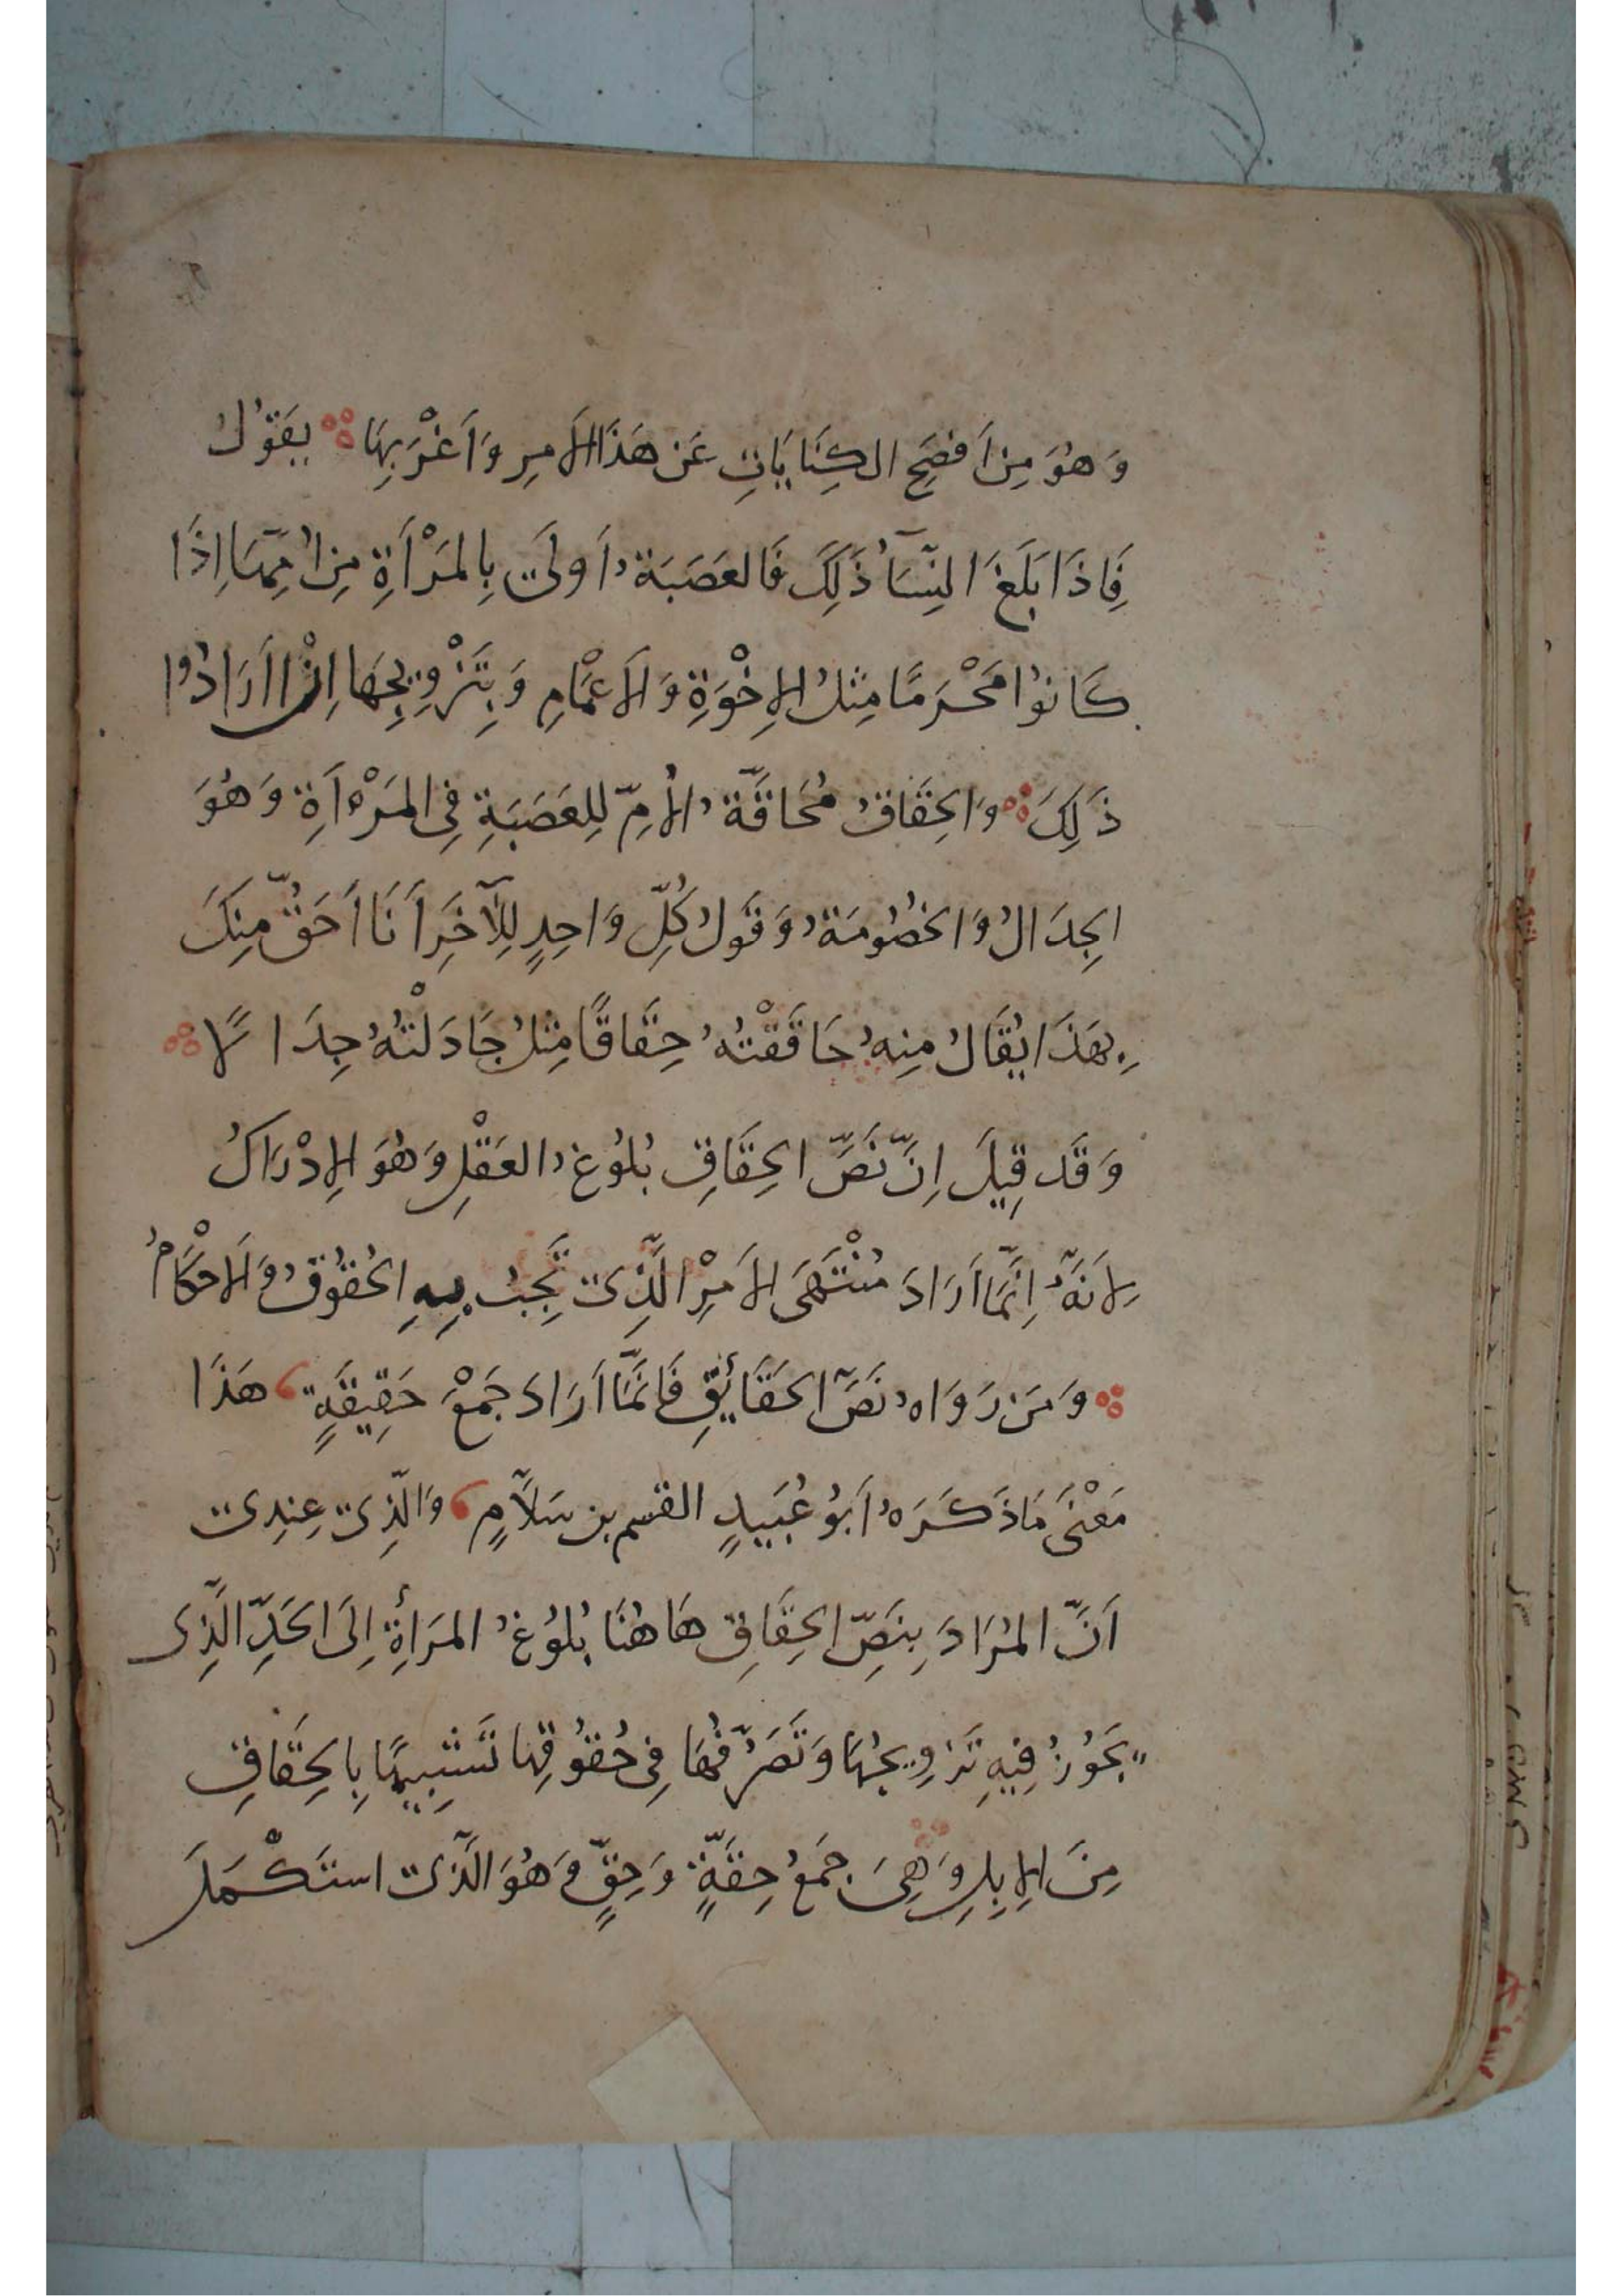 وَهُوَ مِن اَفصَحِ الكِنَايَاتِ عَن هَذَا الاَمرِ وَاَغْرَبِهَا ۞ يَقُولُ
فَاِذَا بَلَغَ النِّسَآءُ ذَلِكَ فَالعَصَبَةُ اَولَى بِالمَرْأَةِ مِن اُمِّهَا اِذَا
كَانُوا مَحْرَمًا مِثلُ الاِخْوَةِ وَالاَعْمَامِ وَبِتَزْوِيجِهَا اِنْ اَرَادُوا
ذَلِكَ ۞ وَالحِقَاقُ مُحَاقَّةُ الاُمِّ لِلعَصَبَةِ فِى المَرْأَةِ وَهُوَ
الجِدَالُ وَالخُصُومَةُ وَقَولُ كُلِّ وَاحِدٍ لِلآخَرِ أَنَا اَحَقُّ مِنكَ
بِهَذَا يُقَالُ مِنهُ حَاقَقْتُهُ حِقَاقًا مِثلُ جَادَلْتُهُ جِدَالًا ۞
وَقَد قِيلَ اِنَّ نَصَّ الحِقَاقِ بُلُوغُ العَقْلِ وَهُوَ الاِدْرَاكُ
لِاَنَّهُ اِنَّمَا اَرَادَ مُنْتَهَى الاَمْرِ الَّذِى تَجِبُ بِهِ الحُقُوقُ وَالاَحْكَامُ
۞ وَمَن رَوَاهُ نَصَّ الحَقَائِقِ فَاِنَّمَا اَرَادَ جَمْعَ حَقِيقَةٍ ، هَذَا
مَعْنَى مَا ذَكَرَهُ اَبُو عُبَيدٍ القسم بن سَلاَّمٍ ، وَالَّذِى عِندِى
اَنَّ المُرَادَ بِنَصِّ الحِقَاقِ هَاهُنَا بُلُوغُ المَرأَةِ اِلَى الحَدِّ الَّذِى
يَجُوزُ فِيهِ تَزوِيجُهَا وَتَصَرُّفُهَا فِى حُقُوقِهَا تَشبِيهًا بِالحِقَاقِ
مِنَ الاِبِلِ وَهِىَ جَمعُ حِقَّةٍ وَحِقٍّ وَهُوَ الَّذِى استَكْمَلَ